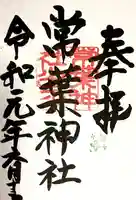 奉拝
常葉神社
令和元年